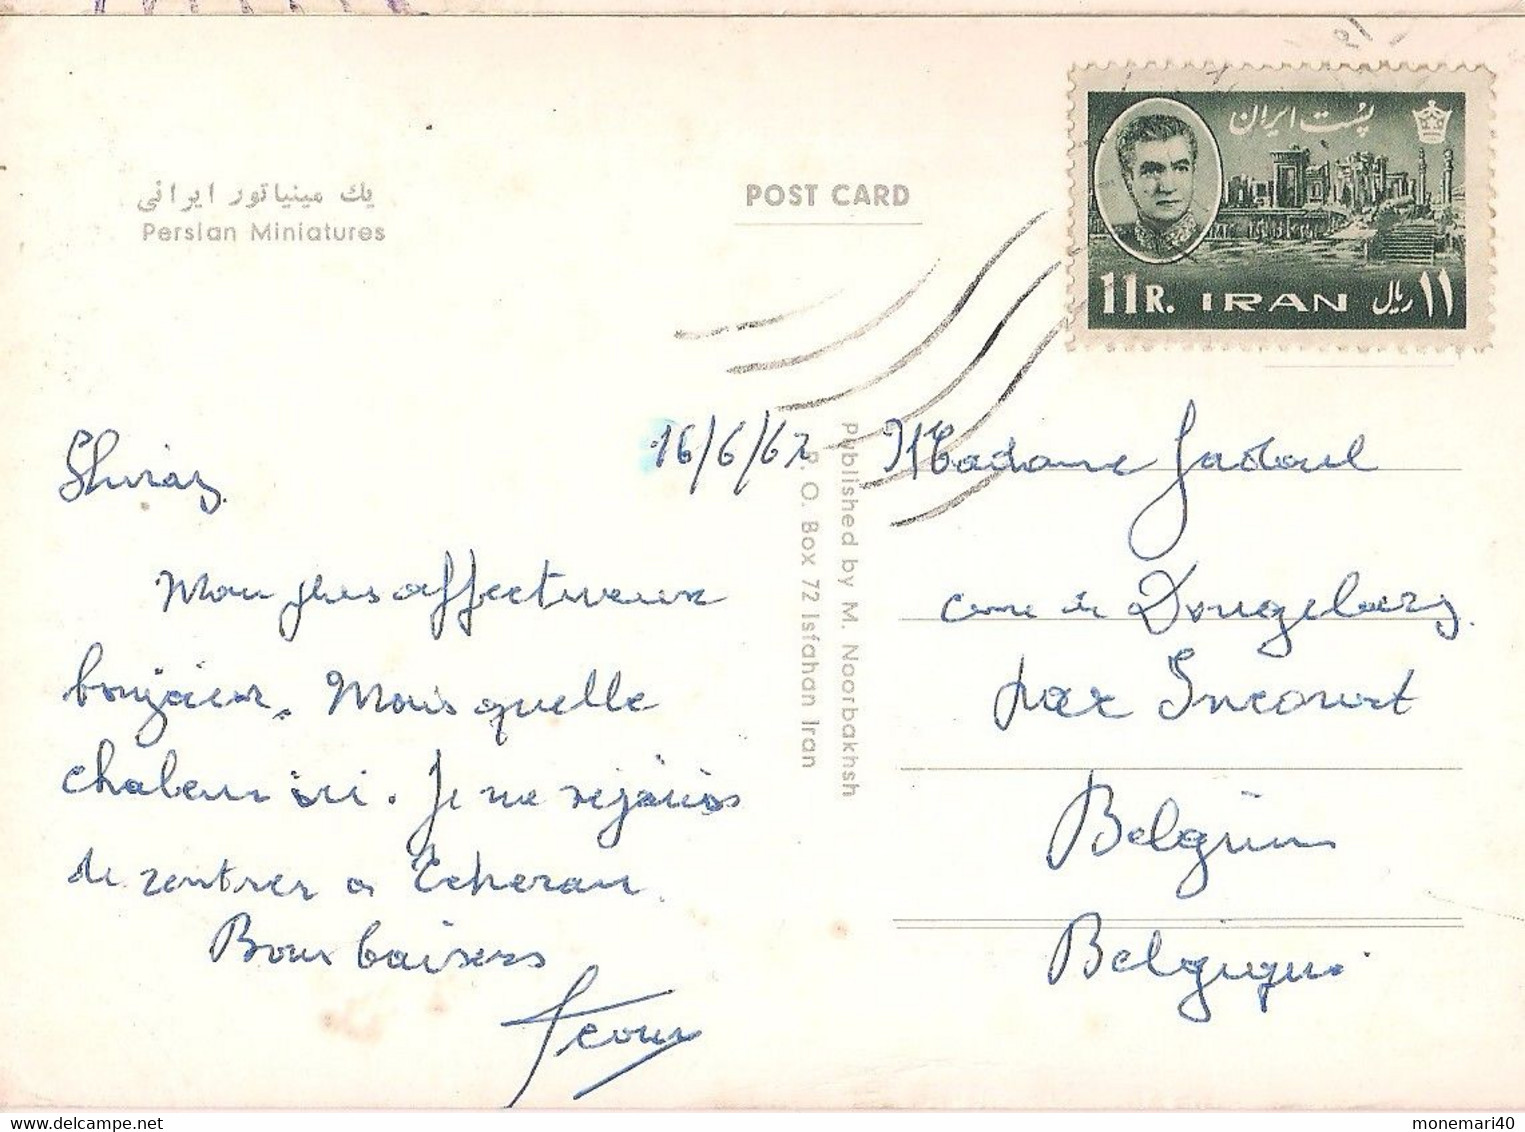 یك مینیاتور ایرانی
Persian Miniatures
POST CARD
پست ایران
11 R. IRAN ۱۱ ریال
Published by M. Noorbakhsh
P. O. Box 72 Isfahan Iran
Shiraz 16/6/62
Mon plus affectueux
bonjour. Mais quelle
chaleur ici. Je me réjouis
de rentrer à Teheran.
Bons baisers
Madame Jadoul
cure de Donzelberg
par Incourt
Belgium
Belgique
monemari40